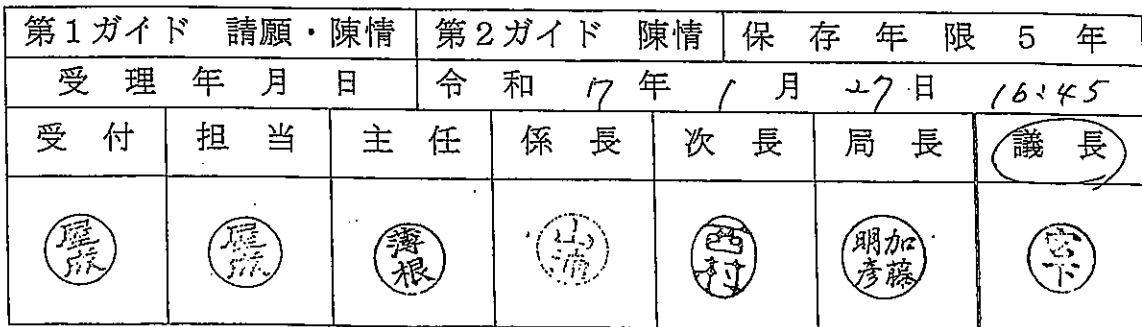 第1ガイド 請願・陳情 第2ガイド 陳情 保存年限5年
受理年月日 令和 7年 1月 27日 16:45
受付 担当 主任 係長 次長 局長 議長
薄根 山浦 西村 加藤明彦 宮下